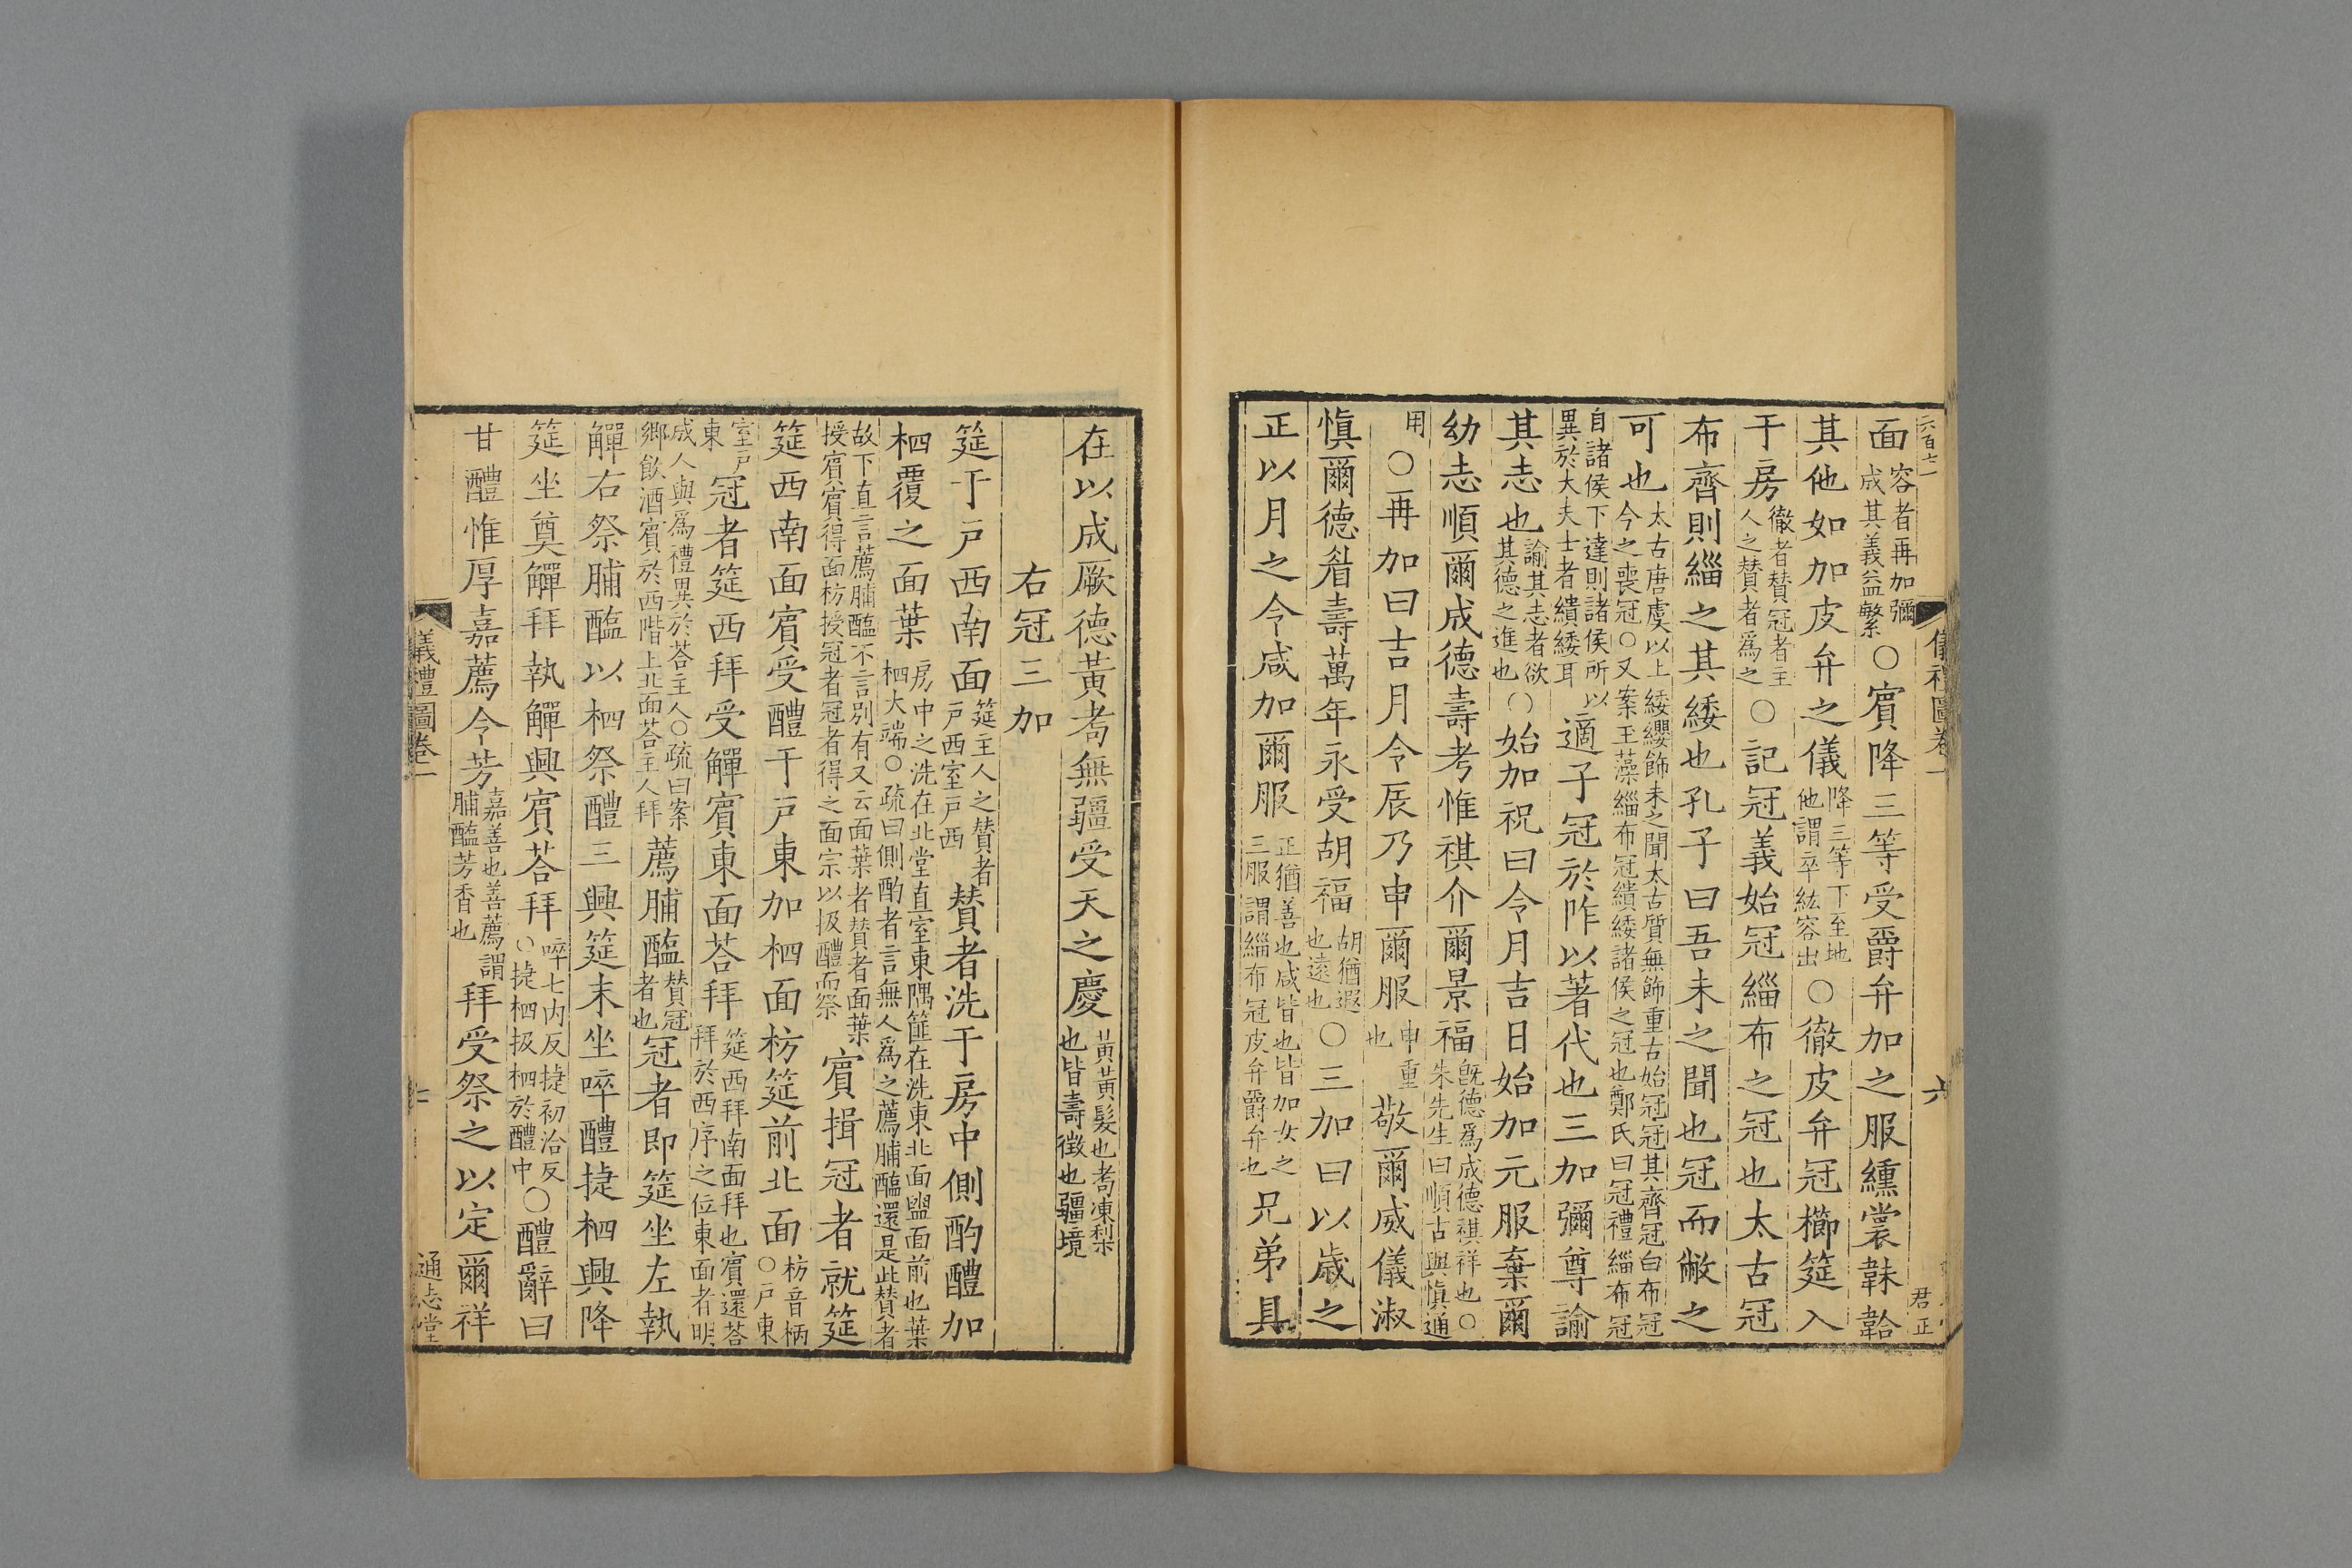 六百七
儀禮圖卷一
六
君正
面容者再加彌成其義益繁○賔降三等受爵弁加之服纁裳韎韐
其他如加皮弁之儀降三等下至地他謂卒紘容出○徹皮弁冠櫛筵入
于房徹者賛冠者主人之賛者爲之○記冠義始冠緇布之冠也太古冠
布齊則緇之其緌也孔子曰吾未之聞也冠而敝之
可也太古唐虞以上緌纓飾未之聞太古質無飾重古始冠冠其齊冠白布冠今之喪冠○又案玉藻緇布冠繢緌諸侯之冠也鄭氏曰冠禮緇布冠
自諸侯下達則諸侯所以異於大夫士者繢緌耳適子冠於阼以著代也三加彌尊諭
其志也諭其志者欲其德之進也○始加祝曰令月吉日始加元服棄爾
幼志順爾成德壽考惟祺介爾景福旣德爲成德祺祥也○朱先生曰順古與愼通
用○再加曰吉月令辰乃申爾服申重也敬爾威儀淑
愼爾德眉壽萬年永受胡福胡猶遐也遠也○三加曰以歲之
正以月之令咸加爾服正猶善也咸皆也皆加女之三服謂緇布冠皮弁爵弁也兄弟具
在以成厥德黃耇無疆受天之慶黃黃髮也耇凍梨也皆壽徵也疆境
右冠三加
筵于戶西南面筵主人之賛者戶西室戶西賛者洗于房中側酌醴加
柶覆之面葉房中之洗在北堂直室東隅篚在洗東北面盥面前也葉柶大端○疏曰側酌者言無人爲之薦脯醢還是此賛者
故下直言薦脯醢不言別有又云面葉者賛者面葉授賔賔得面枋授冠者冠者得之面宗以扱醴而祭賔揖冠者就筵
筵西南面賔受醴于戶東加柶面枋筵前北面枋音柄○戶東
室戶東冠者筵西拜受觶賔東面荅拜筵西拜南面拜也賔還荅拜於西序之位東面者明
成人與爲禮異於荅主人○疏曰案鄉飲酒賔於西階上北面荅主人拜薦脯醢賛冠者也冠者即筵坐左執
觶右祭脯醢以柶祭醴三興筵末坐啐醴捷柶興降
筵坐奠觶拜執觶興賔荅拜啐七內反捷初洽反○捷柶扱柶於醴中○醴辭曰
甘醴惟厚嘉薦令芳嘉善也善薦謂脯醢芳香也拜受祭之以定爾祥
儀禮圖卷一
通志堂